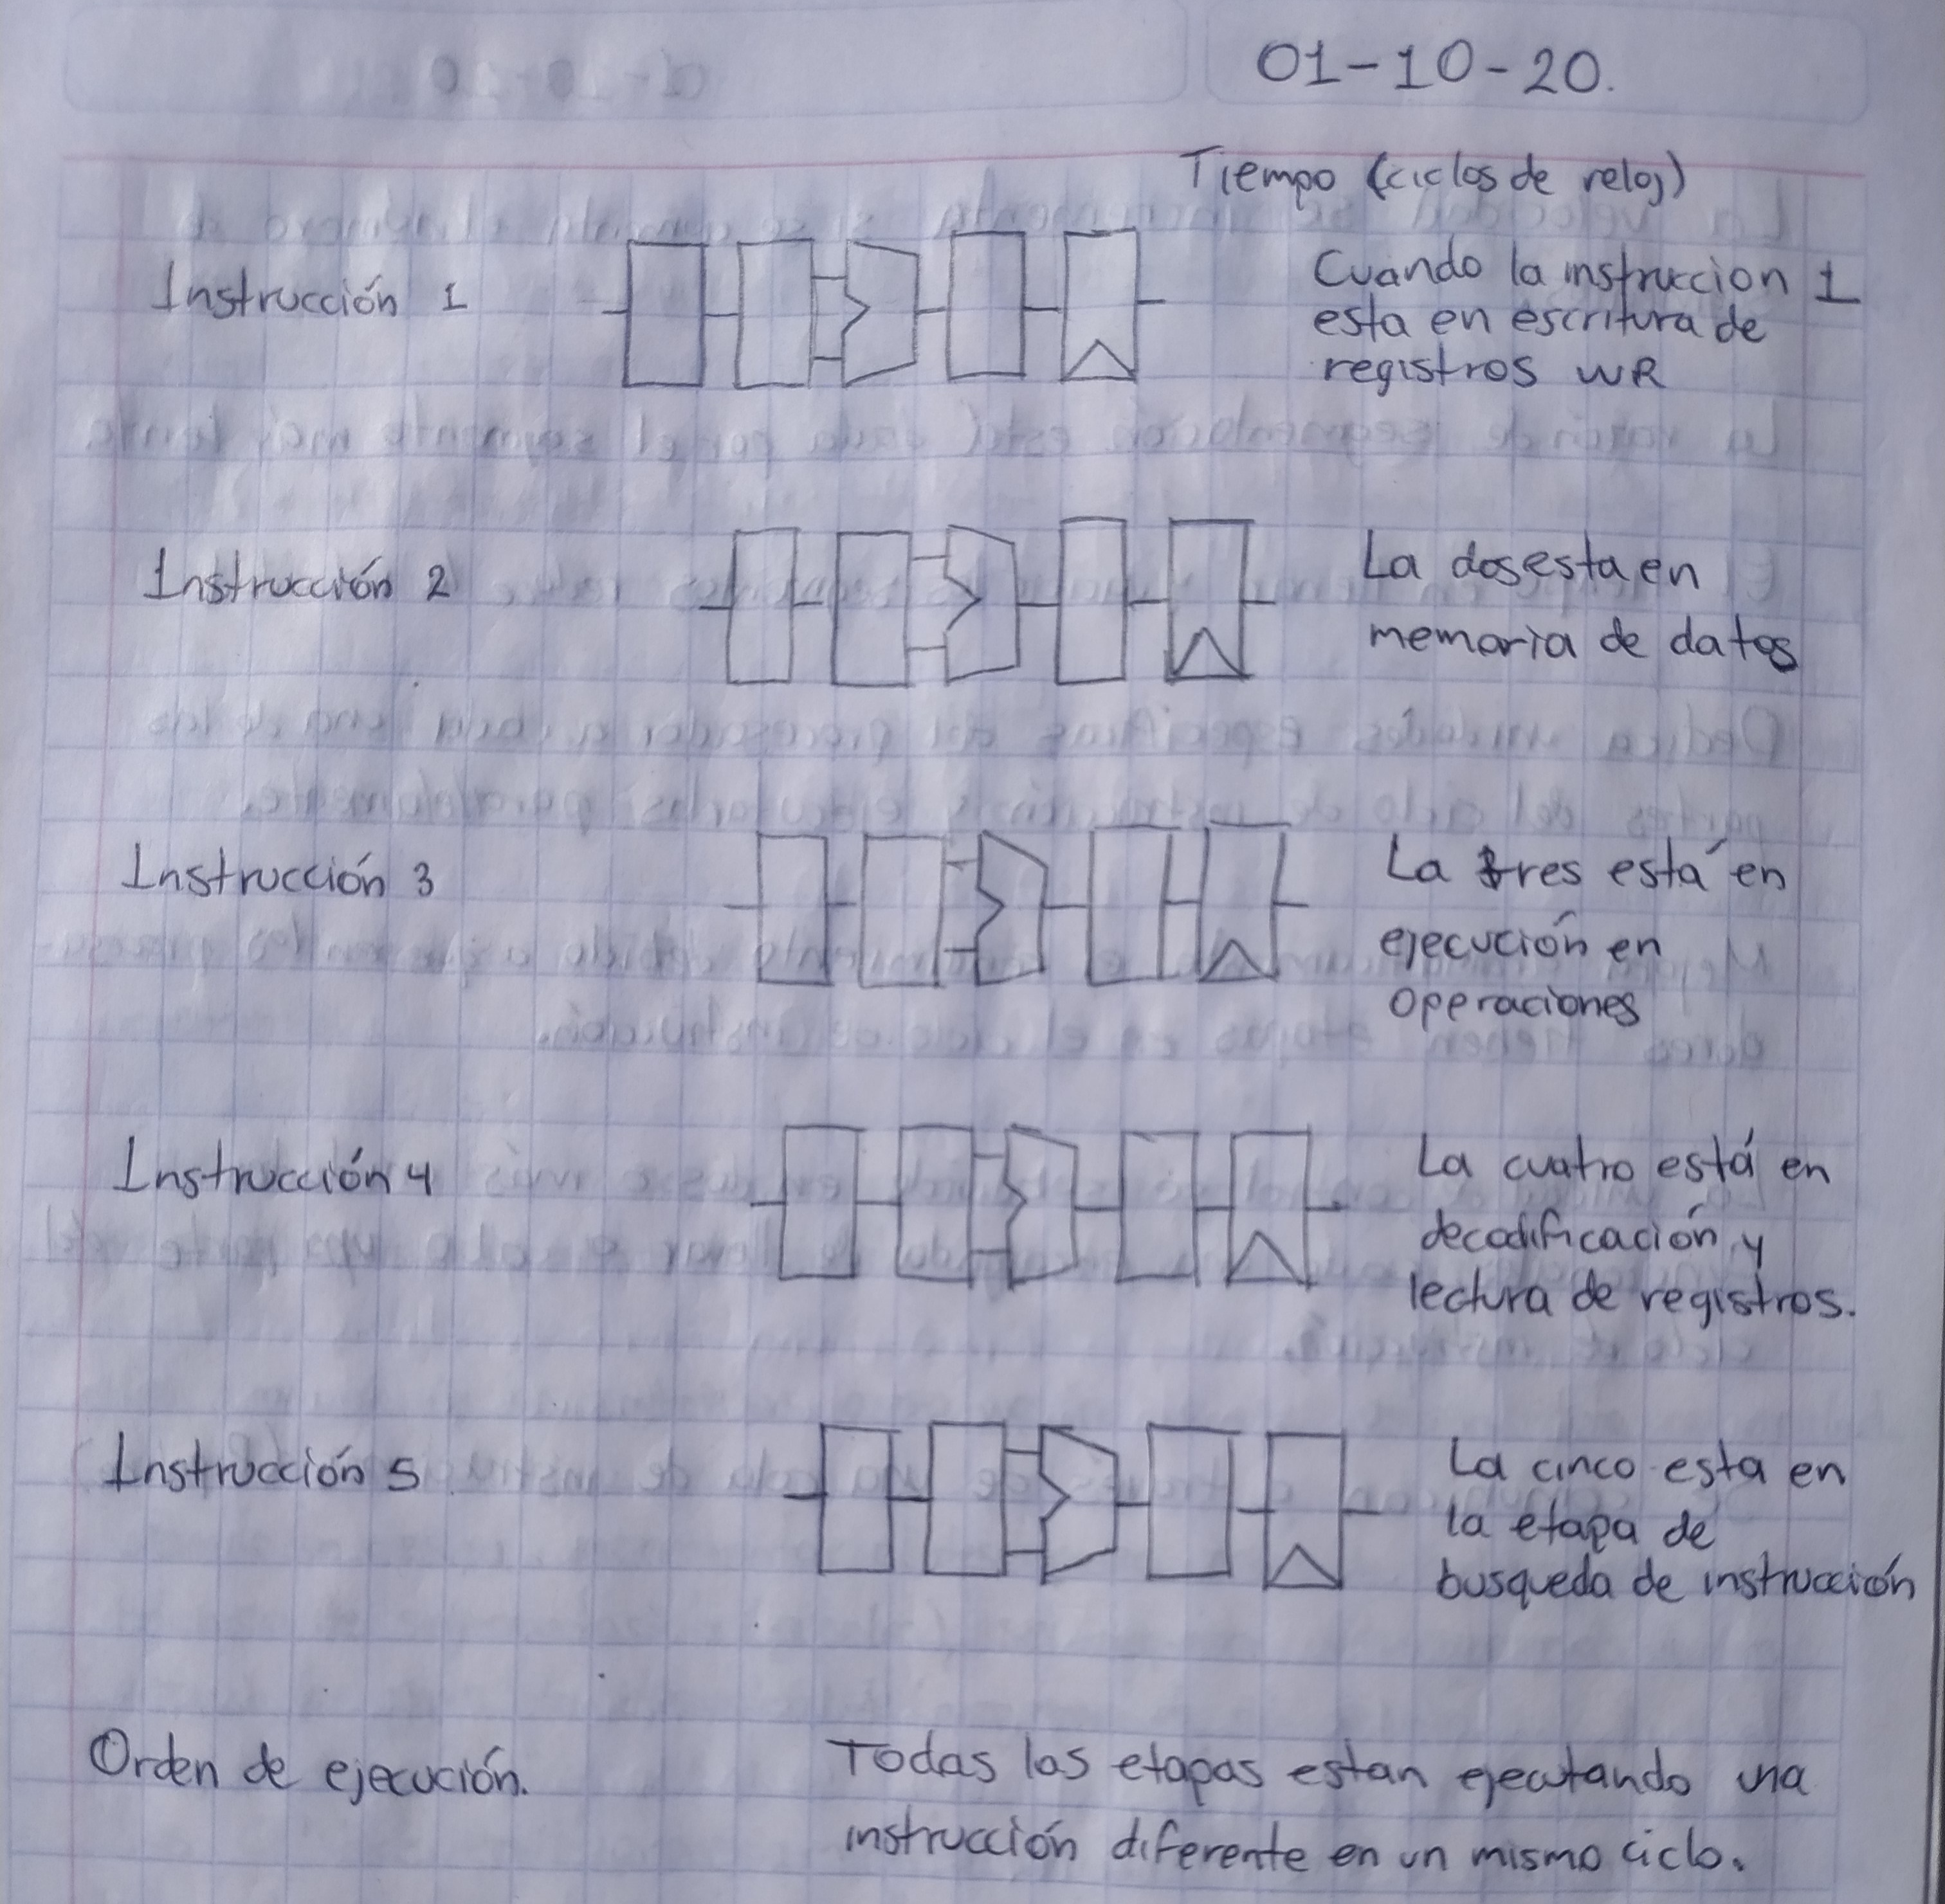 01-10-20.
Tiempo (ciclos de reloj)
Instrucción 1
Cuando la instruccion 1
esta en escritura de
registros WR
Instrucción 2
La dos esta en
memoria de datos
Instrucción 3
La tres está en
ejecución en
operaciones
Instrucción 4
La cuatro está en
decodificación y
lectura de registros.
Instrucción 5
La cinco esta en
la etapa de
busqueda de instrucción
Orden de ejecución.
Todas las etapas estan ejecutando una
instrucción diferente en un mismo ciclo.